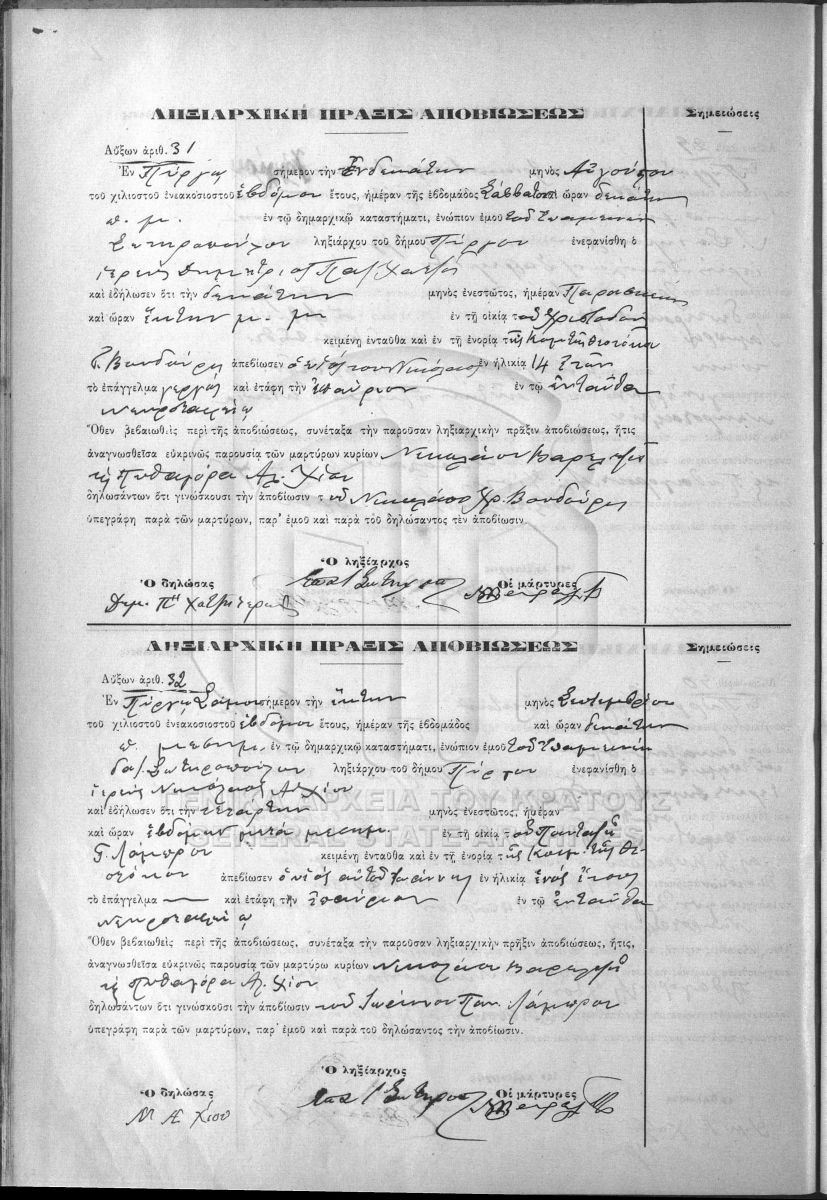 ΛΗΞΙΑΡΧΙΚΗ ΠΡΑΞΙΣ ΑΠΟΒΙΩΣΕΩΣ
Σημειώσεις
Αὔξων ἀριθ. 31
Ἐν Πύργῳ σήμερον τὴν Ἑνδεκάτην μηνὸς Αὐγούστου
τοῦ χιλιοστοῦ ἐνεακοσιοστοῦ ἑβδόμου ἔτους, ἡμέραν τῆς ἑβδομάδος Σάββατον καὶ ὥραν δεκάτην
π. μ. ἐν τῷ δημαρχικῷ καταστήματι, ἐνώπιον ἐμοῦ τοῦ
Σωτηροπούλου ληξιάρχου τοῦ δήμου Πύργου ἐνεφανίσθη ὁ
ἱερεὺς Δημήτριος
καὶ ἐδήλωσεν ὅτι τὴν δεκάτην μηνὸς ἐνεστῶτος, ἡμέραν Παρασκευὴν
καὶ ὥραν ἕκτην μ. μ. ἐν τῇ οἰκίᾳ τοῦ Χριστοδού
κειμένῃ ἐνταῦθα καὶ ἐν τῇ ἐνορίᾳ τῆς Κοιμ τῆς Θεοτόκου
Βουδούρη ἀπεβίωσεν ὁ υἱός του Νικόλαος ἐν ἡλικίᾳ 14 ἐτῶν
τὸ ἐπάγγελμα γεωργὸς καὶ ἐτάφη τὴν ἐπαύριον ἐν τῷ ἐνταῦθα
νεκροταφείῳ
Ὅθεν βεβαιωθεὶς περὶ τῆς ἀποβιώσεως, συνέταξα τὴν παροῦσαν ληξιαρχικὴν πρᾶξιν ἀποβιώσεως, ἥτις
ἀναγνωσθεῖσα εὐκρινῶς παρουσίᾳ τῶν μαρτύρων κυρίων Νικολάου
Πυθαγόρα Αλ. Χίου
δηλωσάντων ὅτι γινώσκουσι τὴν ἀποβίωσιν τοῦ Νικολάου Χρ. Βουδούρη
ὑπεγράφη παρὰ τῶν μαρτύρων, παρ' ἐμοῦ καὶ παρὰ τοῦ δηλώσαντος τὲν ἀποβίωσιν.
Ὁ ληξίαρχος
Ὁ δηλώσας
Οἱ μάρτυρες
ΛΗΞΙΑΡΧΙΚΗ ΠΡΑΞΙΣ ΑΠΟΒΙΩΣΕΩΣ
Σημειώσεις
Αὔξων ἀριθ. 32
Ἐν Πύργῳ Σάμου σήμερον τὴν ἕκτην μηνὸς Σεπτεμβρίου
τοῦ χιλιοστοῦ ἐνεακοσιοστοῦ ἑβδόμου ἔτους, ἡμέραν τῆς ἑβδομάδος καὶ ὥραν δεκάτην
π. μεσημ. ἐν τῷ δημαρχικῷ καταστήματι, ἐνώπιον ἐμοῦ τοῦ
Σωτηροπούλου ληξιάρχου τοῦ δήμου Πύργου ἐνεφανίσθη ὁ
ἱερεὺς Νικόλαος Χίου
καὶ ἐδήλωσεν ὅτι τὴν τετάρτην μηνὸς ἐνεστῶτος, ἡμέραν
καὶ ὥραν ἑβδόμην μετὰ μεσημ. ἐν τῇ οἰκίᾳ τοῦ Πανταζῆ
Γ. Λάμπρου κειμένῃ ἐνταῦθα καὶ ἐν τῇ ἐνορίᾳ τῆς Κοιμ. τῆς Θε-
οτόκου ἀπεβίωσεν ὁ υἱὸς αὐτοῦ Ἰωάννης ἐν ἡλικίᾳ ἑνὸς ἔτους
τὸ ἐπάγγελμα — καὶ ἐτάφη τὴν ἐπαύριον ἐν τῷ ἐνταῦθα
νεκροταφείῳ
Ὅθεν βεβαιωθεὶς περὶ τῆς ἀποβιώσεως, συνέταξα τὴν παροῦσαν ληξιαρχικὴν πρῆξιν ἀποβιώσεως, ἥτις,
ἀναγνωσθεῖσα εὐκρινῶς παρουσίᾳ τῶν μαρτύρω κυρίων Νικολάου
Πυθαγόρα Αλ. Χίου
δηλωσάντων ὅτι γινώσκουσι τὴν ἀποβίωσιν τοῦ Ἰωάννου Παν. Λάμπρου
ὑπεγράφη παρὰ τῶν μαρτύρων, παρ' ἐμοῦ καὶ παρὰ τοῦ δηλώσαντος τὴν ἀποβίωσιν.
Ὁ ληξίαρχος
Ὁ δηλώσας
Οἱ μάρτυρες
Χίου
ΓΕΝΙΚΑ ΑΡΧΕΙΑ ΤΟΥ ΚΡΑΤΟΥΣ
GENERAL STATE ARCHIVES